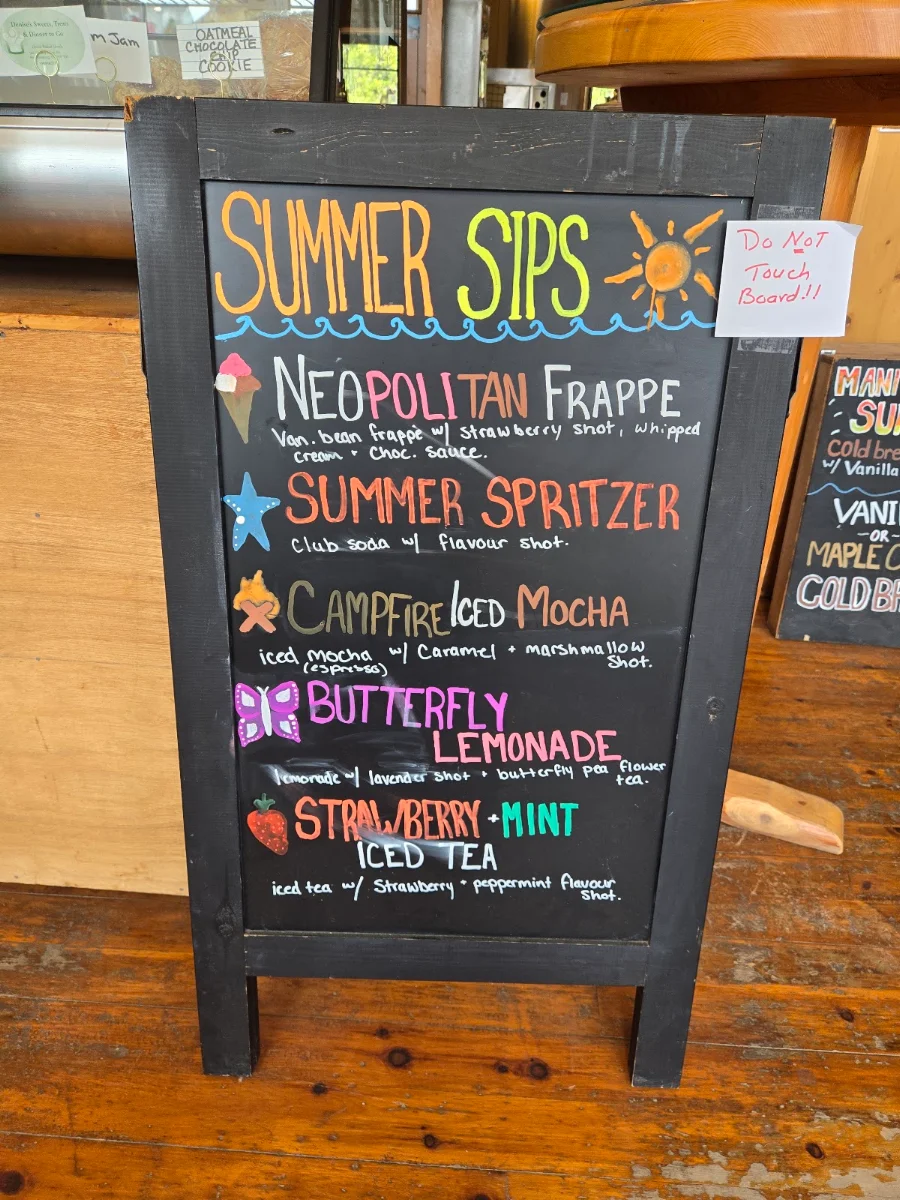 m Jam
OATMEAL
CHOCOLATE
CHIP
COOKIE
SUMMER SIPS
Do NOT
Touch
Board!!
NEOPOLITAN FRAPPE
Van. bean frappe w/ strawberry shot, whipped
cream + choc. sauce.
SUMMER SPRITZER
Club soda w/ flavour shot.
CAMPFIRE ICED MOCHA
iced mocha w/ Caramel + marshmallow
(espresso) Shot.
BUTTERFLY
LEMONADE
lemonade w/ lavender shot + butterfly pea flower
tea.
STRAWBERRY + MINT
ICED TEA
iced tea w/ Strawberry + peppermint flavour
Shot.
MANI
SU
Cold bre
w/ Vanilla
VANI
-OR-
MAPLE C
COLD BR